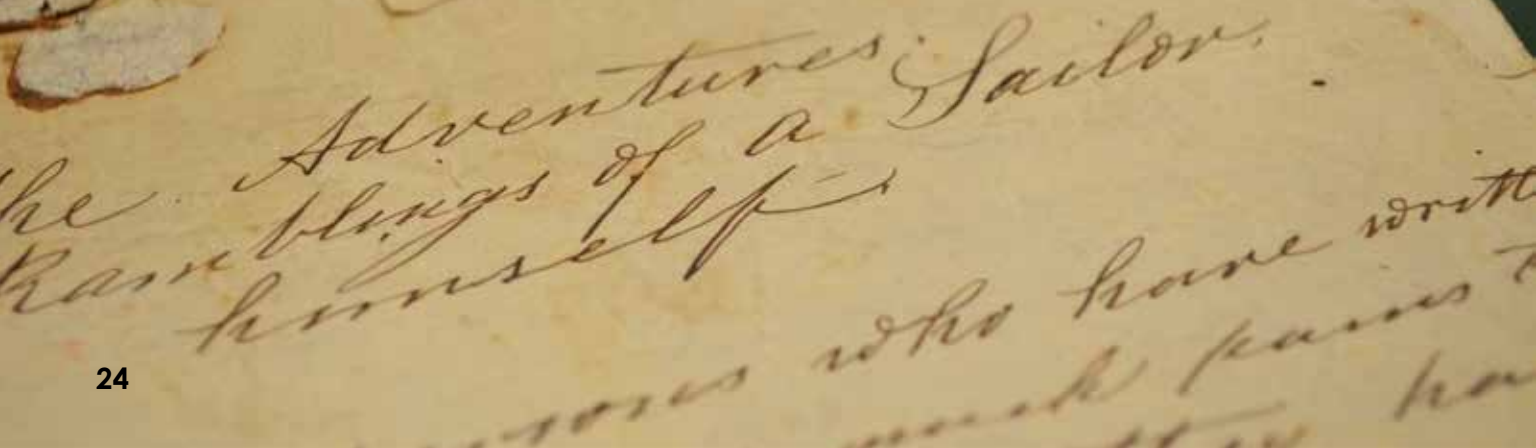 he Adventures.
Ramblings of a Sailor.
himself.
who have writt
much pains t
ha
24